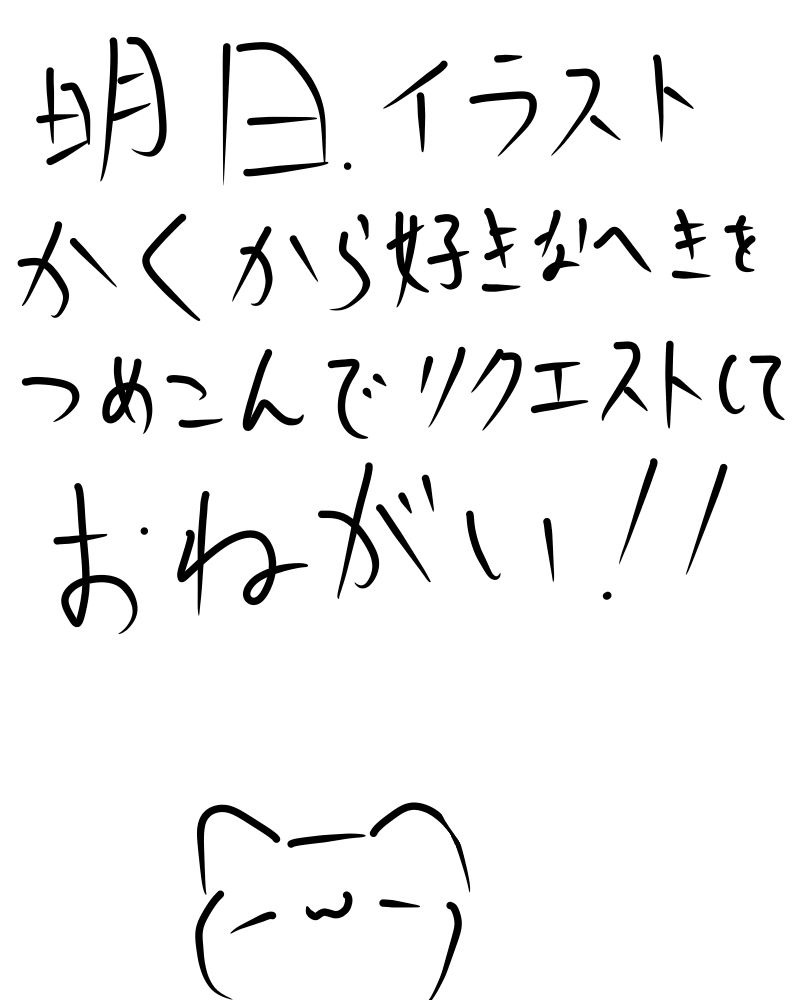 明日.イラスト
かくから好きなへきを
つめこんでリクエストして
おねがい!!